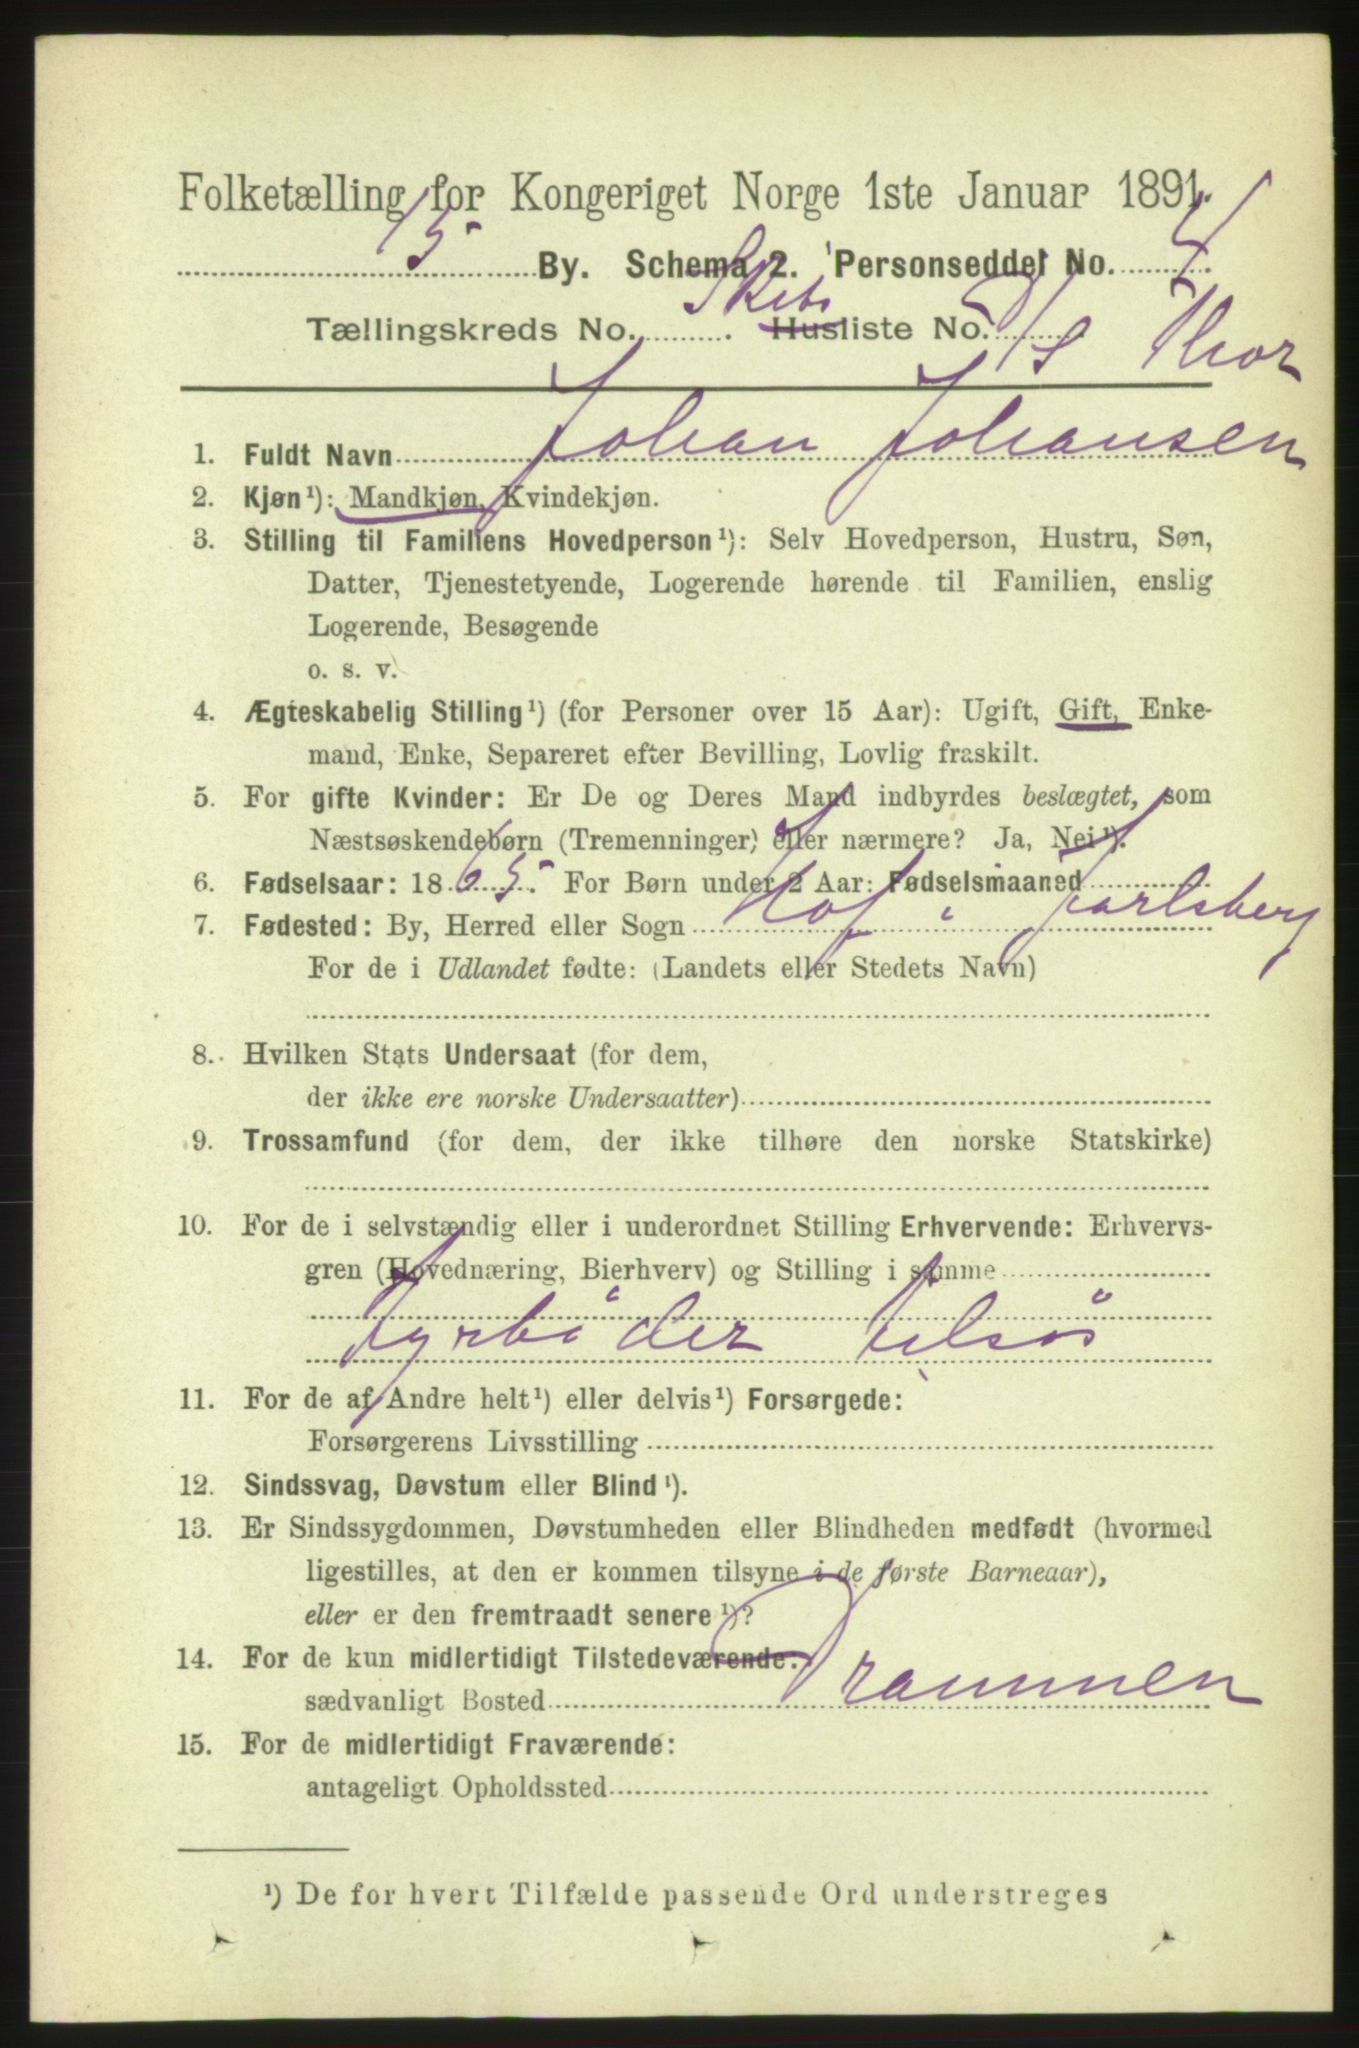 Folketælling for Kongeriget Norge 1ste Januar 1891.
15 By. Schema 2. Personseddel No. 4
Tællingskreds No. . Skibs Husliste No. D/S Thor
1. Fuldt Navn Johan Johansen
2. Kjøn¹): Mandkjøn, Kvindekjøn.
3. Stilling til Familiens Hovedperson¹): Selv Hovedperson, Hustru, Søn,
Datter, Tjenestetyende, Logerende hørende til Familien, enslig
Logerende, Besøgende
o. s. v.
4. Ægteskabelig Stilling¹) (for Personer over 15 Aar): Ugift, Gift, Enke-
mand, Enke, Separeret efter Bevilling, Lovlig fraskilt.
5. For gifte Kvinder: Er De og Deres Mand indbyrdes beslægtet, som
Næstsøskendebørn (Tremenninger) eller nærmere? Ja, Nei¹).
6. Fødselsaar: 1865. For Børn under 2 Aar: Fødselsmaaned
7. Fødested: By, Herred eller Sogn Hof i Jarlsberg
For de i Udlandet fødte: (Landets eller Stedets Navn)
8. Hvilken Stats Undersaat (for dem,
der ikke ere norske Undersaatter)
9. Trossamfund (for dem, der ikke tilhøre den norske Statskirke)
10. For de i selvstændig eller i underordnet Stilling Erhvervende: Erhvervs-
gren (Hovednæring, Bierhverv) og Stilling i samme
Fyrböder tilsös
11. For de af Andre helt¹) eller delvis¹) Forsørgede:
Forsørgerens Livsstilling
12. Sindssvag, Døvstum eller Blind¹).
13. Er Sindssygdommen, Døvstumheden eller Blindheden medfødt (hvormed
ligestilles, at den er kommen tilsyne i de første Barneaar),
eller er den fremtraadt senere¹)?
14. For de kun midlertidigt Tilstedeværende:
sædvanligt Bosted Drammen
15. For de midlertidigt Fraværende:
antageligt Opholdssted
¹) De for hvert Tilfælde passende Ord understreges